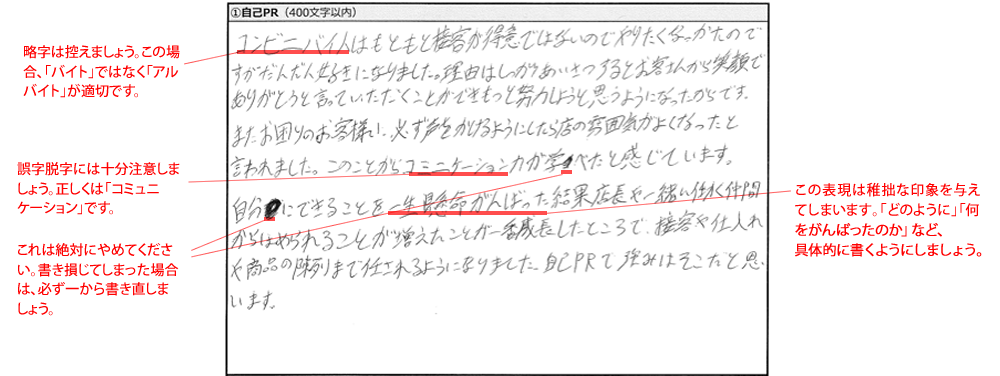 ①自己PR（400文字以内）
コンビニバイトはもともと接客が得意ではないのでやりたくなかったので
すがだんだん好きになりました。理由はしっかりあいさつするとお客さんから笑顔で
ありがとうと言っていただくことができもっと努力しようと思うようになったからです。
またお困りのお客様に、必ず声をかけるようにしたら店の雰囲気がよくなったと
言われました。このことからコミニケーション力が学べたと感じています。
自分にできることを一生懸命がんばった結果店長や一緒に働く仲間
からほめられることが増えたことが一番成長したところで、接客や仕入れ
や商品の陳列まで任されるようになりました。自己PRで強みはそこだと思
います。
略字は控えましょう。この場
合、「バイト」ではなく「アル
バイト」が適切です。
誤字脱字には十分注意しま
しょう。正しくは「コミュニ
ケーション」です。
これは絶対にやめてくださ
い。書き損じてしまった場合
は、必ず一から書き直しま
しょう。
この表現は稚拙な印象を与え
てしまいます。「どのように」「何
をがんばったのか」など、
具体的に書くようにしましょう。